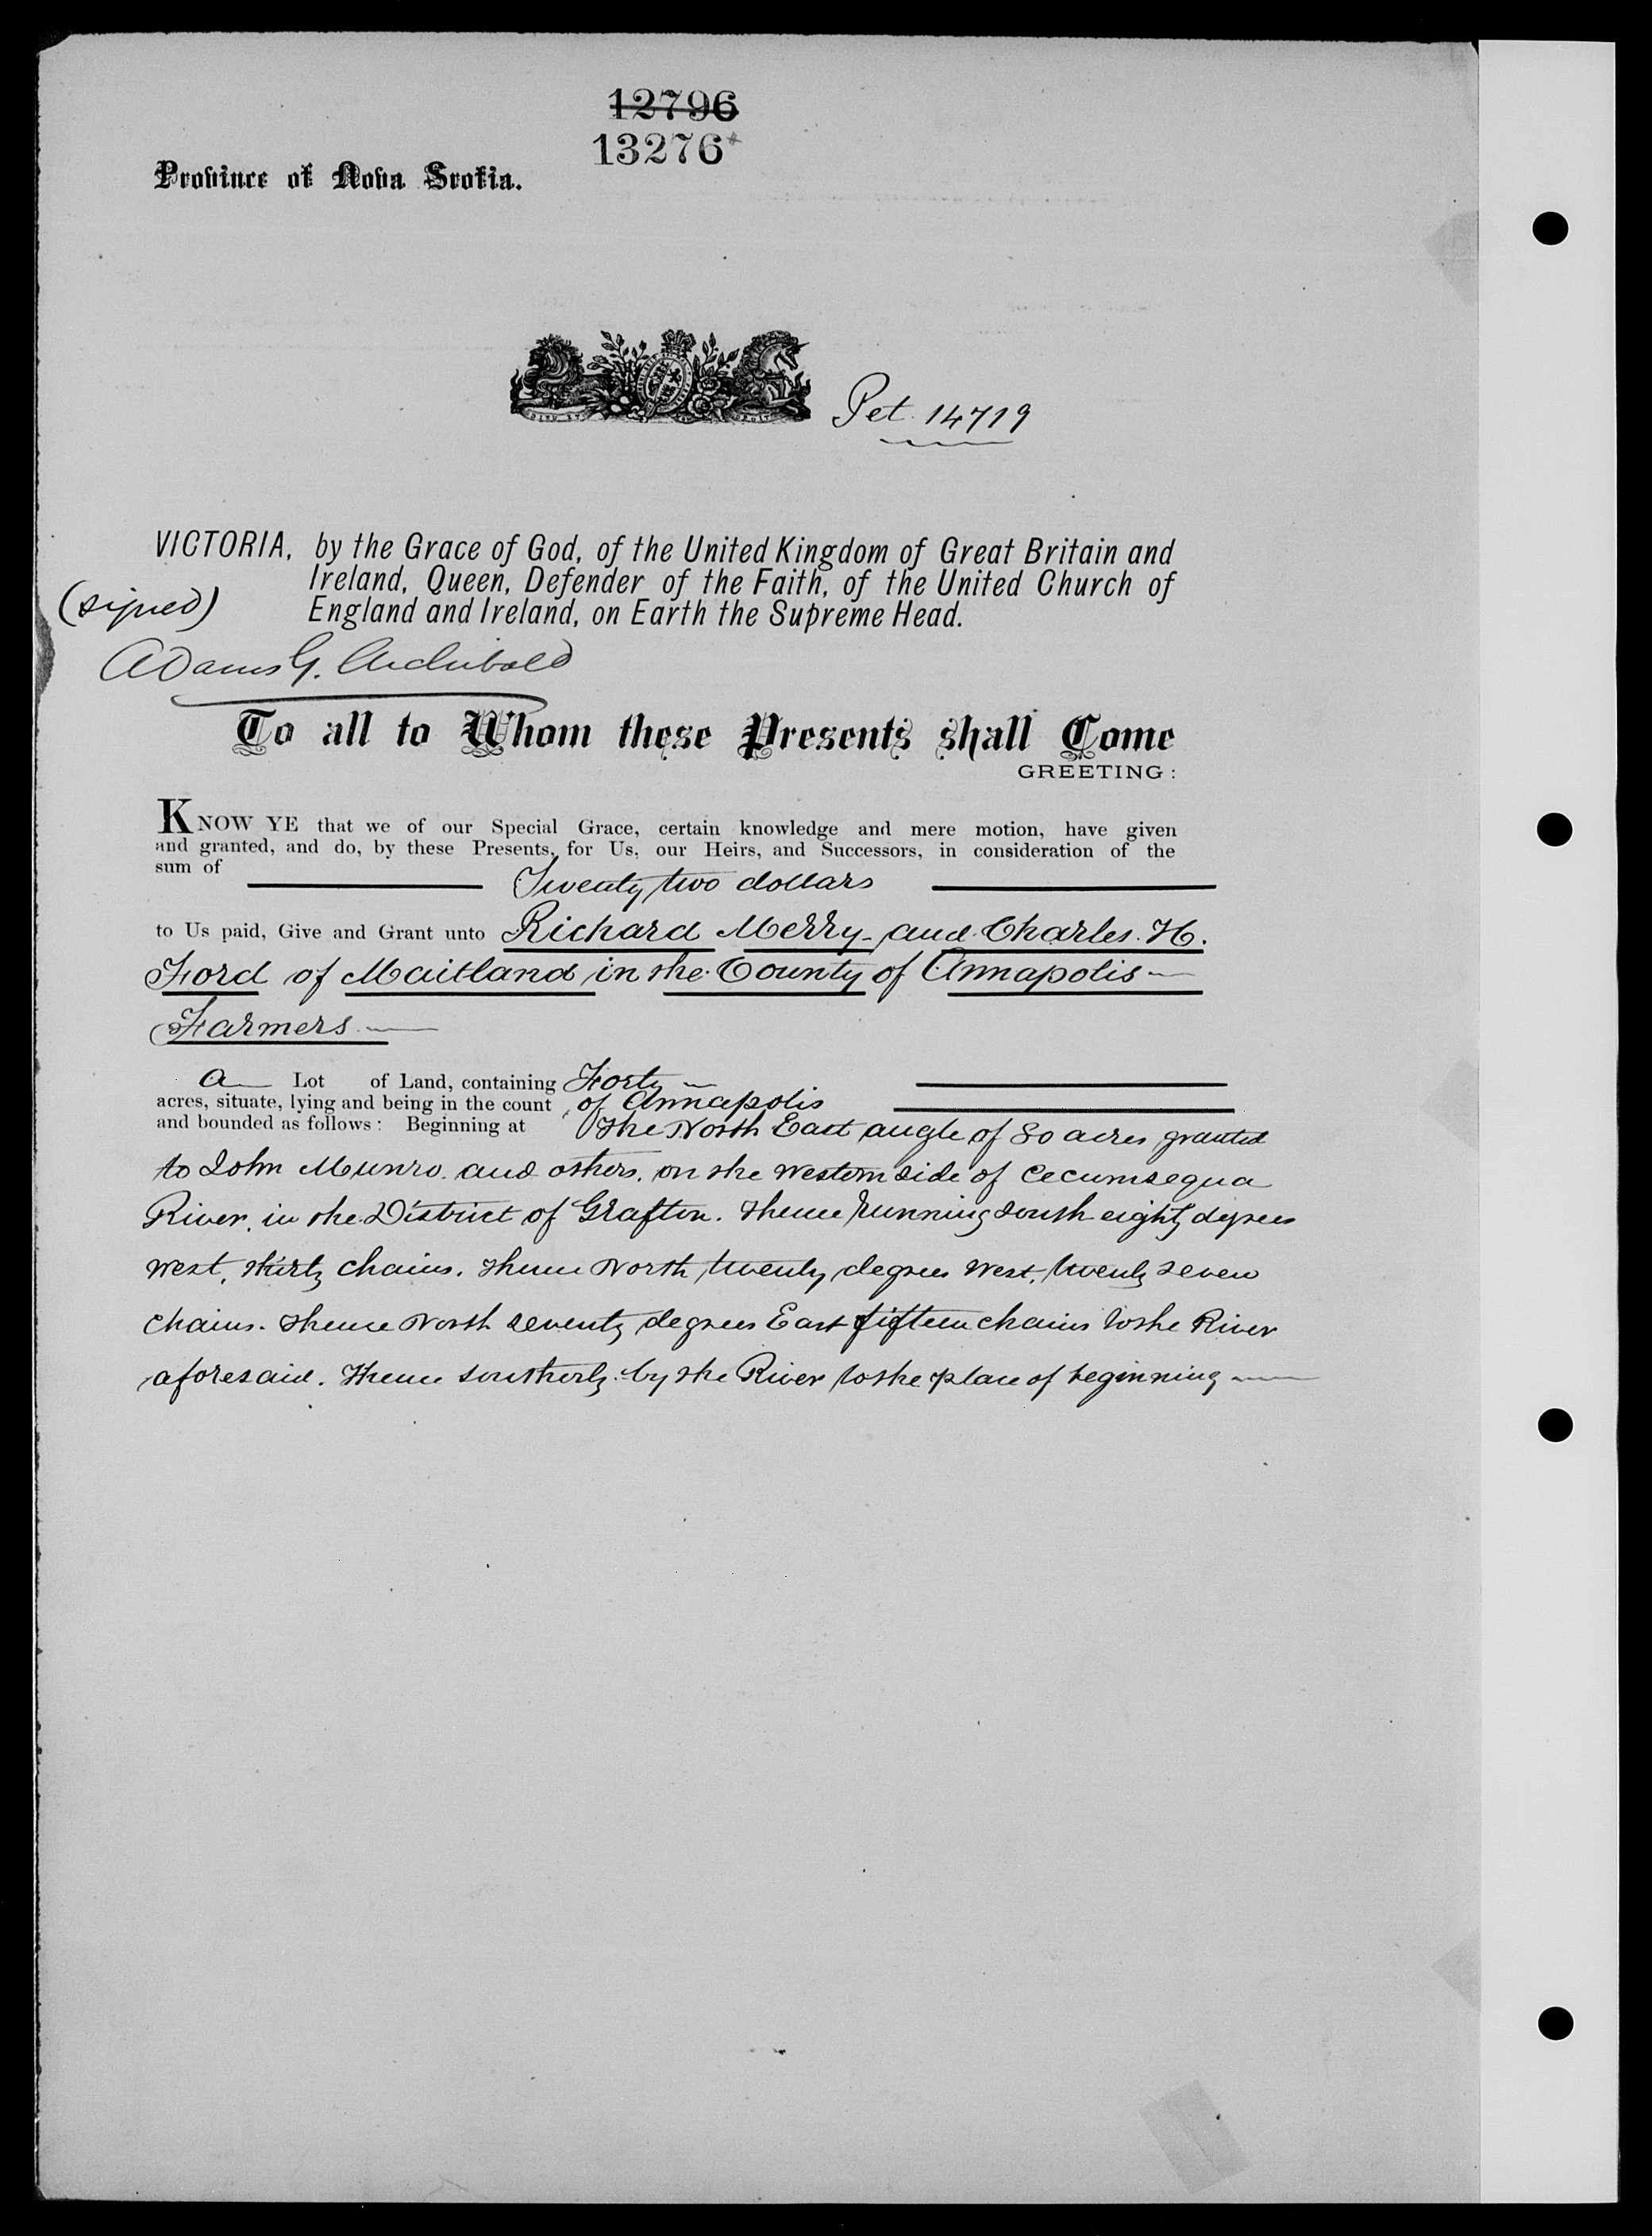 12796
13276
Province of Nova Scotia.
Pet. 14719
VICTORIA, by the Grace of God, of the United Kingdom of Great Britain and
Ireland, Queen, Defender of the Faith, of the United Church of
(signed)
England and Ireland, on Earth the Supreme Head.
Adams G. Archibald
To all to Whom these Presents shall Come
GREETING:
KNOW YE that we of our Special Grace, certain knowledge and mere motion, have given
and granted, and do, by these Presents, for Us, our Heirs, and Successors, in consideration of the
sum of Twenty two dollars
to Us paid, Give and Grant unto Richard Merry and Charles. H.
Ford of Maitland in the County of Annapolis
Farmers
A Lot of Land, containing Forty
acres, situate, lying and being in the count of Annapolis
and bounded as follows: Beginning at the North East angle of 80 acres granted
to John Munro. and others. on the western side of Cecumsequa
River. in the District of Grafton. Thence running South eighty degrees
West, thirty chains. Thence North twenty degrees West, twenty seven
chains. Thence North seventy degrees East fifteen chains to the River
aforesaid. Thence southerly by the River to the place of beginning